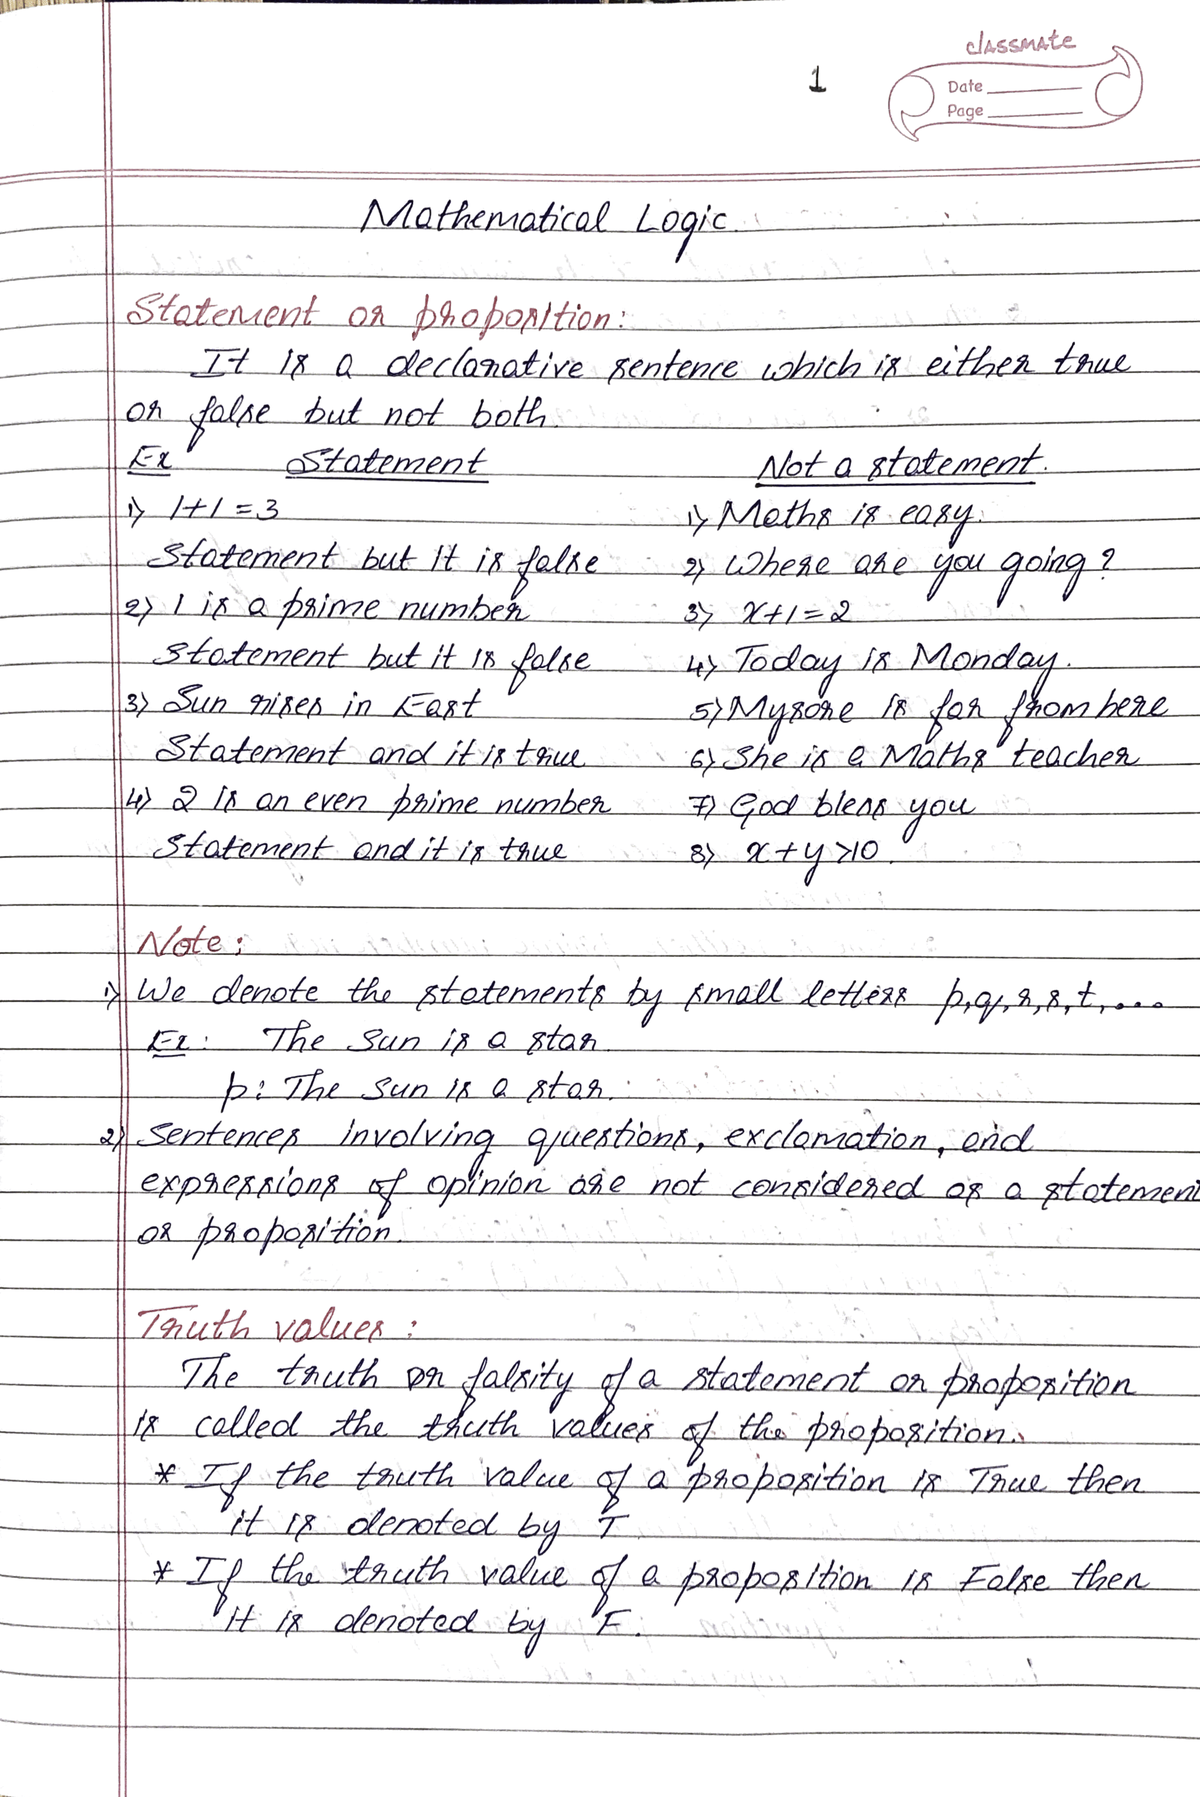 classmate
1
Date
Page
Mathematical Logic
Statement or proposition:
It is a declarative sentence which is either true
or false but not both.
Ex Statement Not a statement.
1) 1+1=3 1) Maths is easy.
Statement but it is false 2) Where are you going?
2) 1 is a prime number 3) x+1=2
Statement but it is false 4) Today is Monday.
3) Sun rises in East 5) Mysore is far from here
Statement and it is true 6) She is a Maths teacher
4) 2 is an even prime number 7) God bless you
Statement and it is true 8) x+y>10.
Note:
1) We denote the statements by small letters p,q,r,s,t,...
Ex: The Sun is a star.
p: The Sun is a star.
2) Sentences involving questions, exclamation, and
expressions of opinion are not considered as a statement
or proposition.
Truth values:
The truth or falsity of a statement or proposition
is called the truth values of the proposition.
* If the truth value of a proposition is True then
it is denoted by T
* If the truth value of a proposition is False then
it is denoted by F.